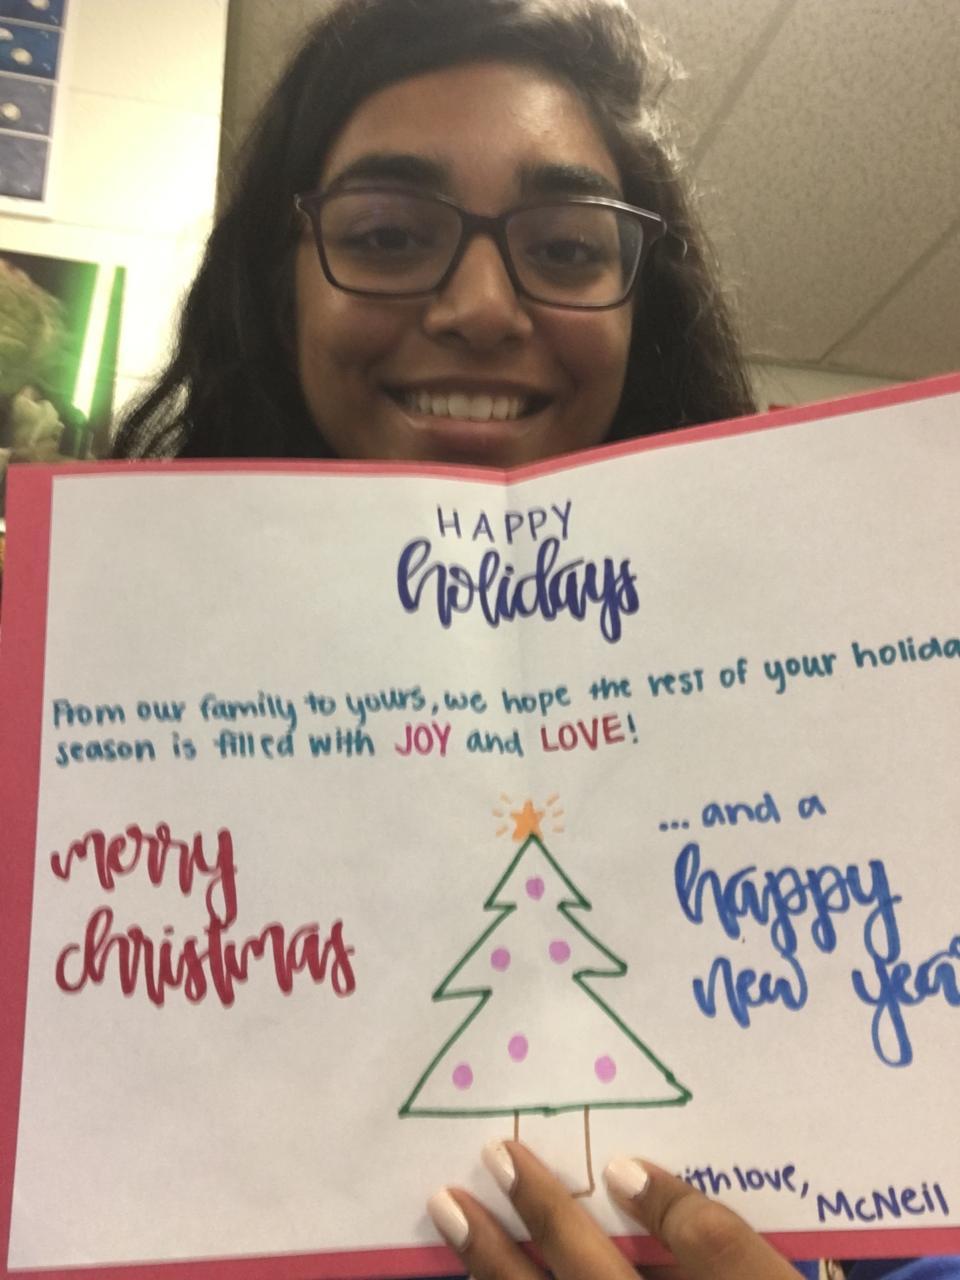 HAPPY
holidays
From our family to yours, we hope the rest of your holida
season is filled with JOY and LOVE!
merry
christmas
... and a
happy
new year
ith love,
McNeil